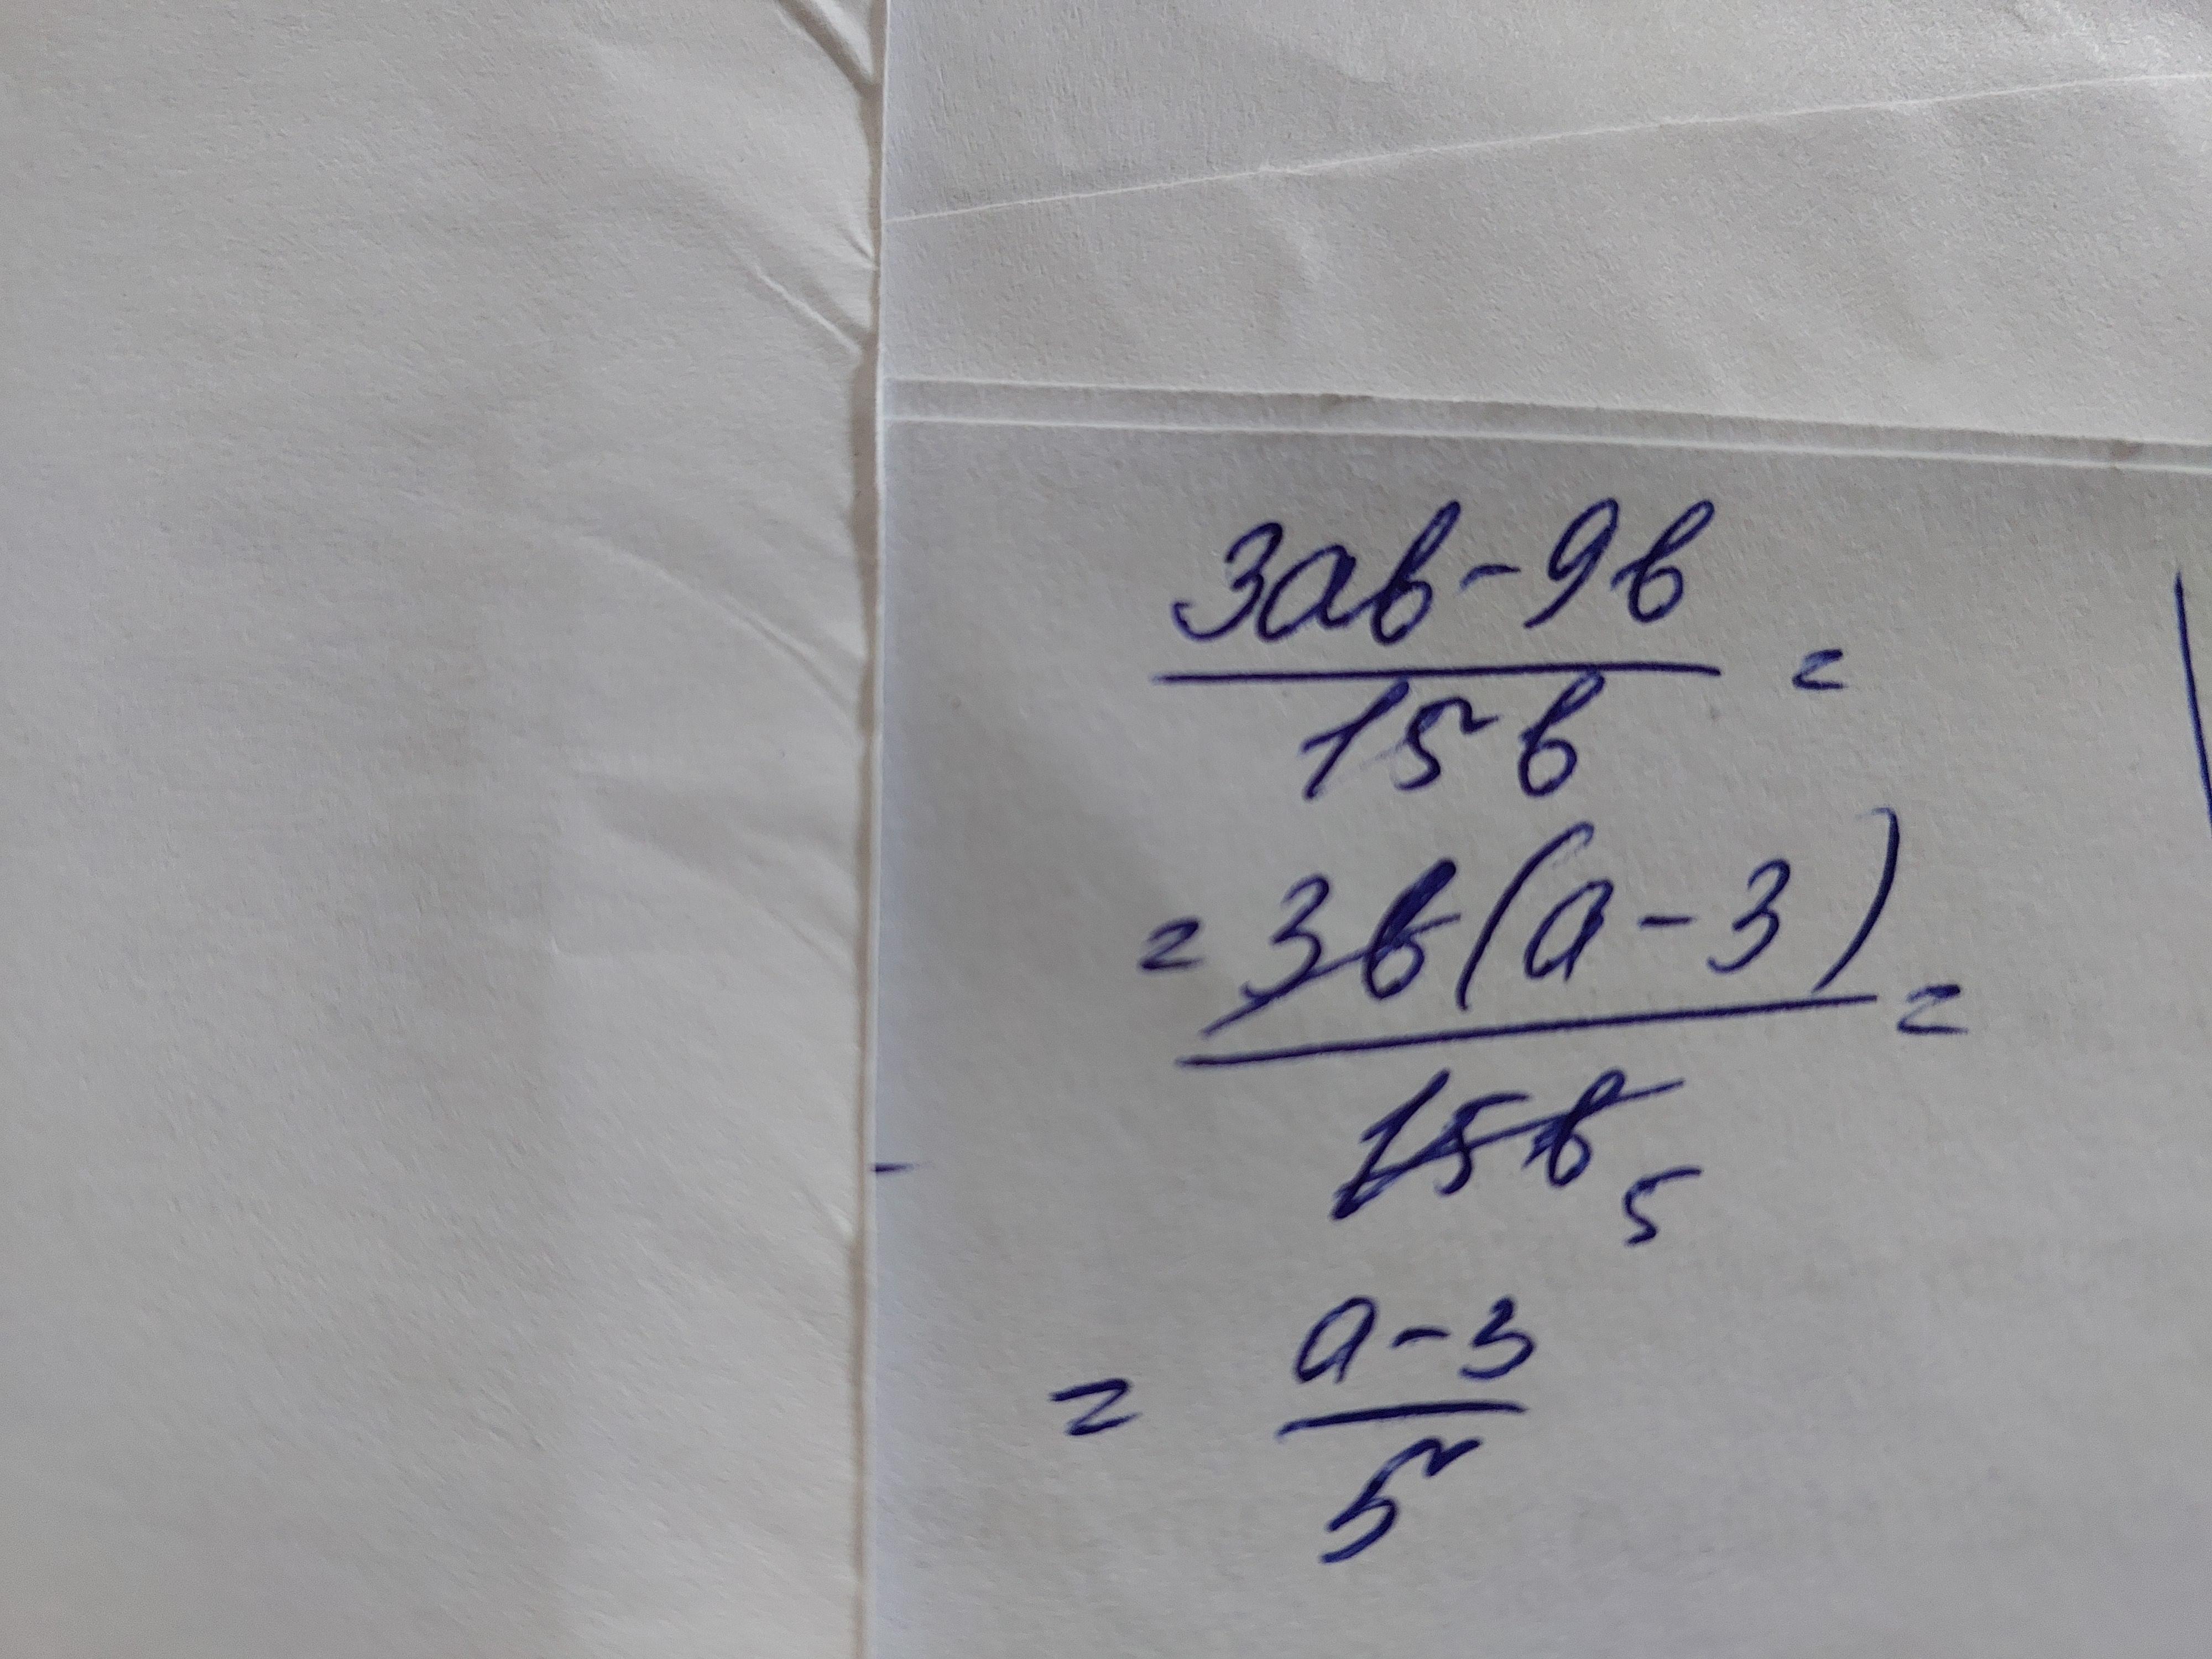 3ab-9b
15b =
= 3b(a-3) =
15b 5
= a-3
5